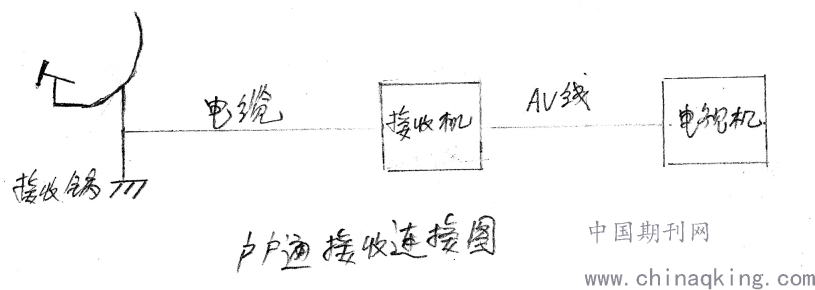 电缆
接收机
AV线
电视机
接收锅
户户通接收连接图
中国期刊网
www.chinaqking.com